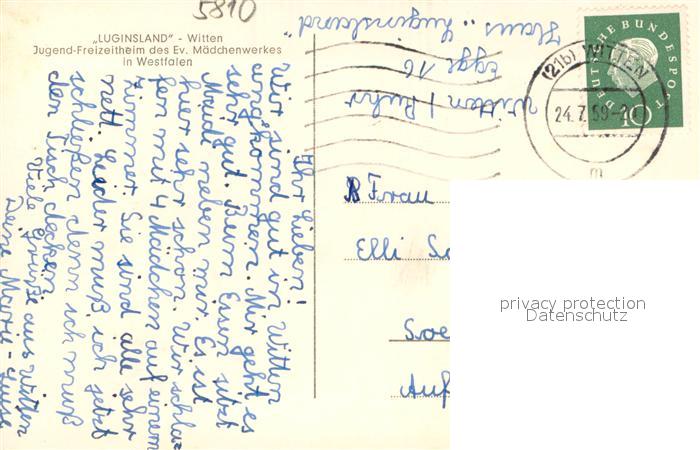 5810
„LUGINSLAND" - Witten
Jugend-Freizeitheim des Ev. Mädchenwerkes
in Westfalen
Haus „Luginsland"
Egge 16
Witten / Ruhr
DEUTSCHE BUNDESPOST
10
(21b) WITTEN
24.7.59-20
m
Ihr Lieben!
Wir sind gut in Witten
angekommen. Mir geht es
sehr gut. Beim Essen sitzt
Maudi neben mir. Es ist
hier sehr schön. Wir schla-
fen mit 4 Mädchen auf einem
Zimmer. Sie sind alle sehr
nett. Leider muß ich jetzt
schließen denn ich muß
den Tisch decken.
Viele Grüße aus Witten
Deine Marie-Luise
Frau
Elli
Soe
Auf
privacy protection
Datenschutz